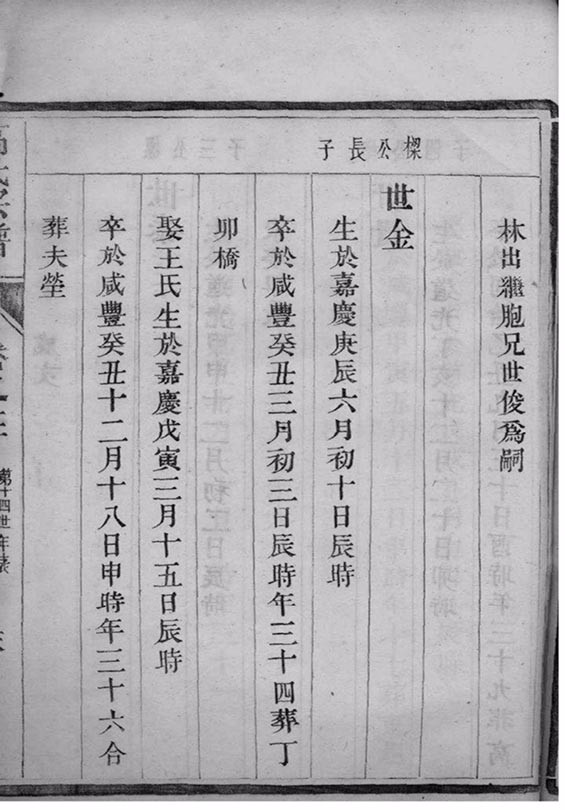 林出繼胞兄世俊爲嗣
樑公長子
世金
生於嘉慶庚辰六月初十日辰時
卒於咸豐癸丑三月初三日辰時年三十四葬丁
卯橋
娶王氏生於嘉慶戊寅三月十五日辰時
卒於咸豐癸丑十二月十八日申時年三十六合
葬夫塋
氏宗譜
第十四世年表